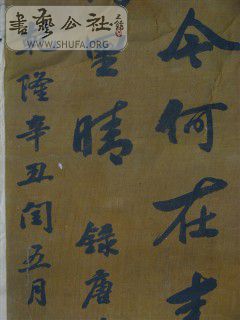 書藝公社
WWW.SHUFA.ORG
今何在
晴 錄唐
隆辛丑闰五月